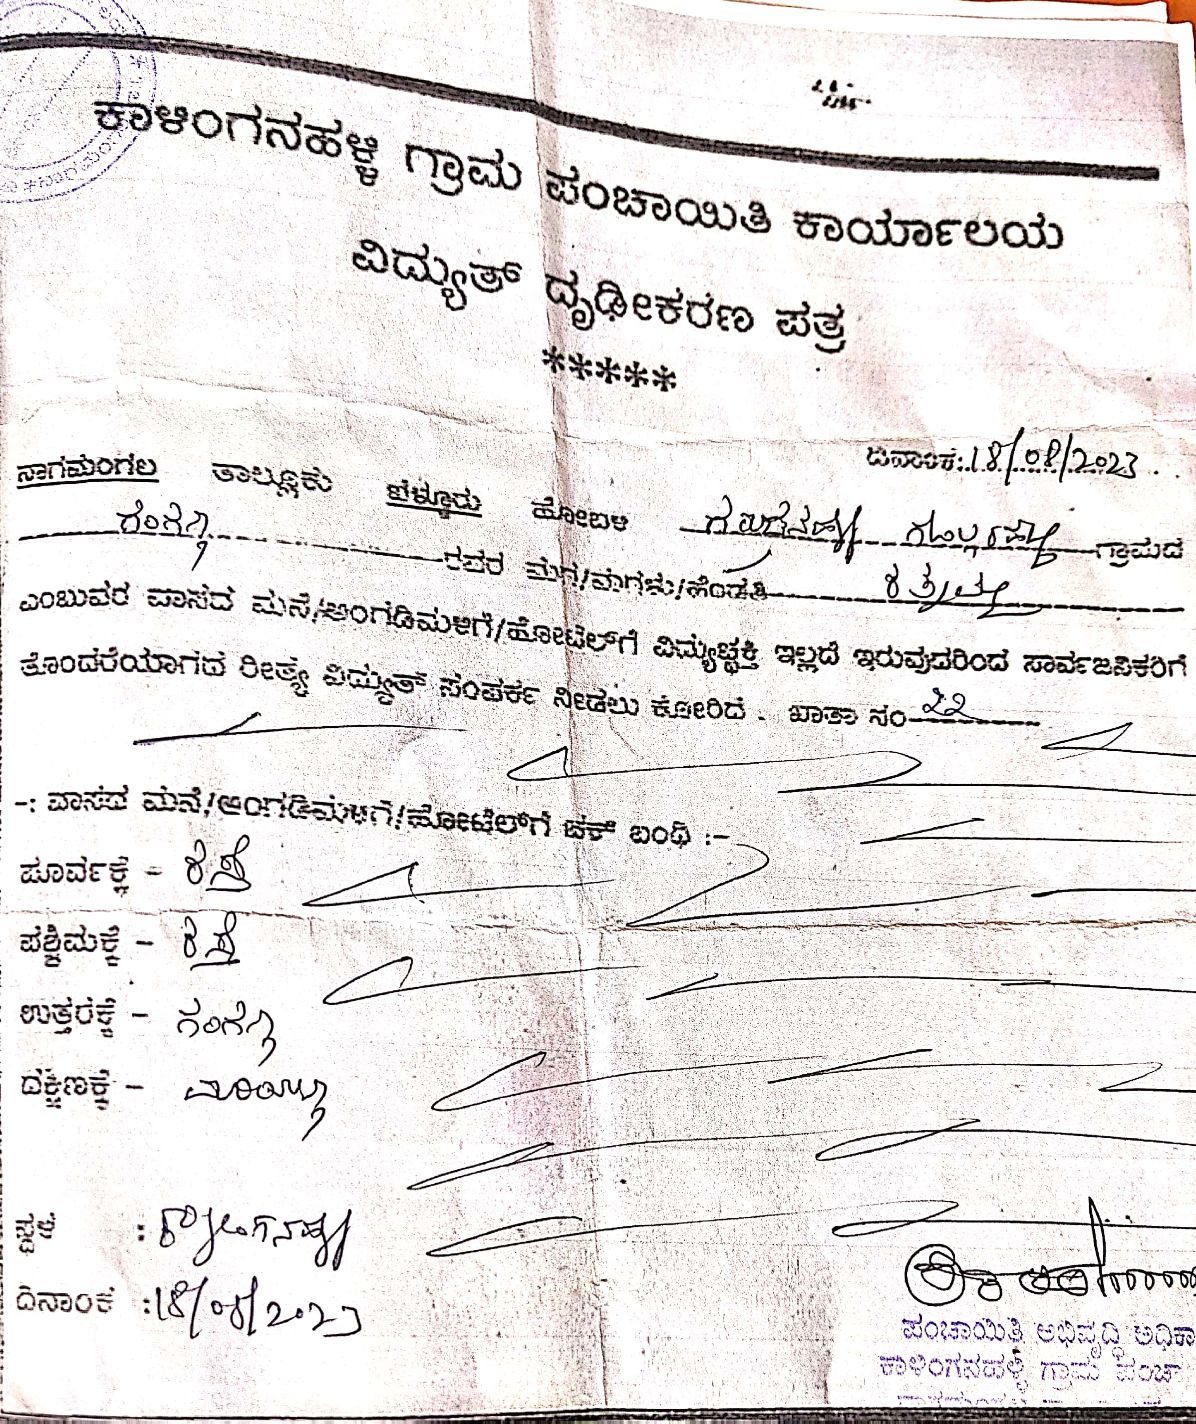 ಕಾಳಿಂಗನಹಳ್ಳಿ ಗ್ರಾಮ ಪಂಚಾಯಿತಿ ಕಾರ್ಯಾಲಯ
ವಿದ್ಯುತ್ ದೃಢೀಕರಣ ಪತ್ರ
*****
ದಿನಾಂಕ:18/08/2023
ನಾಗಮಂಗಲ ತಾಲ್ಲೂಕು ಬೆಳ್ಳೂರು ಹೋಬಳಿ ಗ್ರಾಮದ
ರವರ ಮಗ/ಮಗಳು/ಹೆಂಡತಿ
ಎಂಬುವರ ವಾಸದ ಮನೆ/ಅಂಗಡಿಮಳಿಗೆ/ಹೋಟೆಲ್‌ಗೆ ವಿದ್ಯುಚ್ಛಕ್ತಿ ಇಲ್ಲದೆ ಇರುವುದರಿಂದ ಸಾರ್ವಜನಿಕರಿಗೆ
ತೊಂದರೆಯಾಗದ ರೀತ್ಯ ವಿದ್ಯುತ್ ಸಂಪರ್ಕ ನೀಡಲು ಕೋರಿದೆ. ಖಾತಾ ಸಂ 22
-: ವಾಸದ ಮನೆ/ಅಂಗಡಿಮಳಿಗೆ/ಹೋಟೆಲ್‌ಗೆ ಚಕ್ ಬಂಧಿ :-
ಪೂರ್ವಕ್ಕೆ - ರಸ್ತೆ
ಪಶ್ಚಿಮಕ್ಕೆ - ರಸ್ತೆ
ಉತ್ತರಕ್ಕೆ -
ದಕ್ಷಿಣಕ್ಕೆ -
ಸ್ಥಳ : ಕಾಳಿಂಗನಹಳ್ಳಿ
ದಿನಾಂಕ :18/08/2023
ಪಂಚಾಯಿತಿ ಅಭಿವೃದ್ಧಿ ಅಧಿಕಾ
ಕಾಳಿಂಗನಹಳ್ಳಿ ಗ್ರಾಮ ಪಂಚಾ